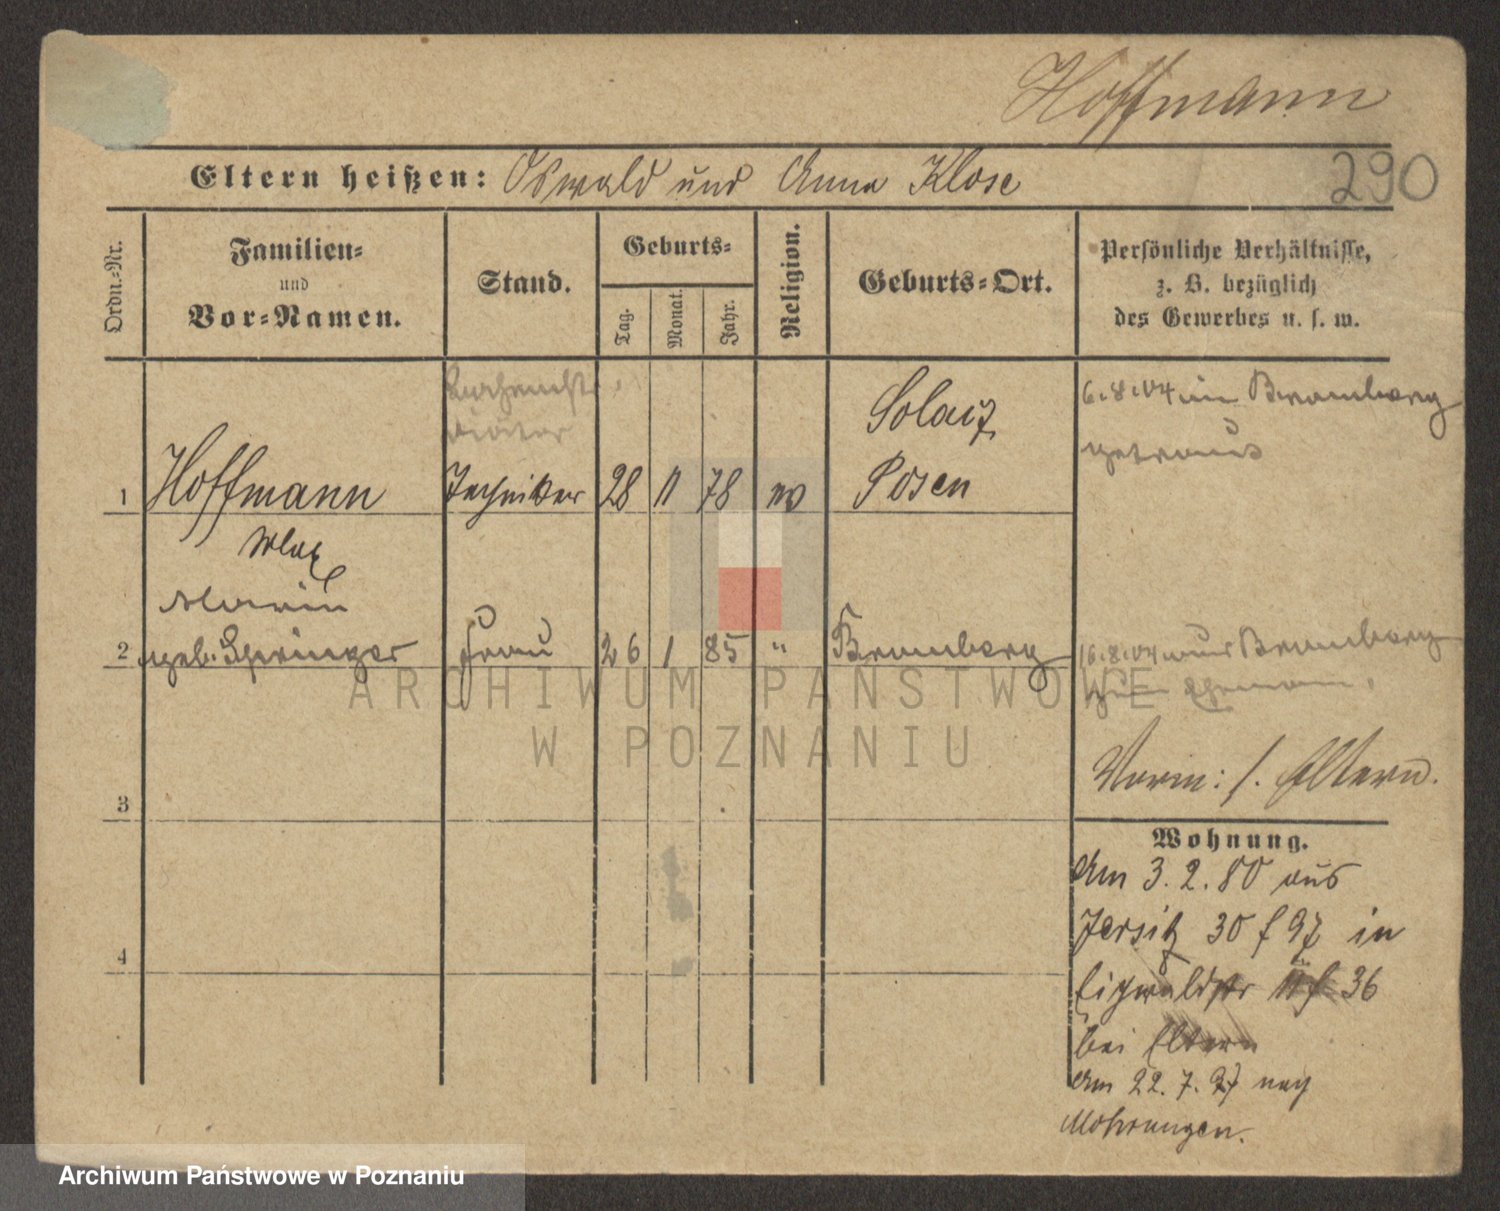 Hoffmann
290
Eltern heißen: Oswald und Anna Klose
Ordn.-Nr.
Familien-
und
Vor-Namen.
Stand.
Geburts-
Tag.
Monat.
Jahr.
Religion.
Geburts-Ort.
Persönliche Verhältnisse,
z. B. bezüglich
des Gewerbes u. s. w.
6.8.04 in Bromberg
getraut
Solacz
1 Hoffmann Techniker 28 11 78 ev Posen
Max
Marie
2 geb. Springer Frau 26 1 85 " Bromberg
16.8.04 aus Bromberg
zum Ehemann.
Vorm: s. Eltern.
3
Wohnung.
Am 3.2.80 aus
Jersitz 30 f 97 in
Eichwaldstr 36
4
bei Eltern
Am 22.7.97 nach
Mohrungen.
ARCHIWUM PAŃSTWOWE
W POZNANIU
Archiwum Państwowe w Poznaniu